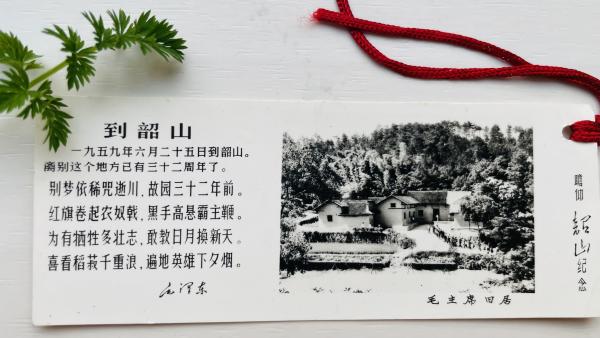 到韶山
一九五九年六月二十五日到韶山。
离别这个地方已有三十二周年了。
别梦依稀咒逝川，故园三十二年前。
红旗卷起农奴戟，黑手高悬霸主鞭。
为有牺牲多壮志，敢教日月换新天。
喜看稻菽千重浪，遍地英雄下夕烟。
毛泽东
毛主席旧居
瞻仰韶山纪念